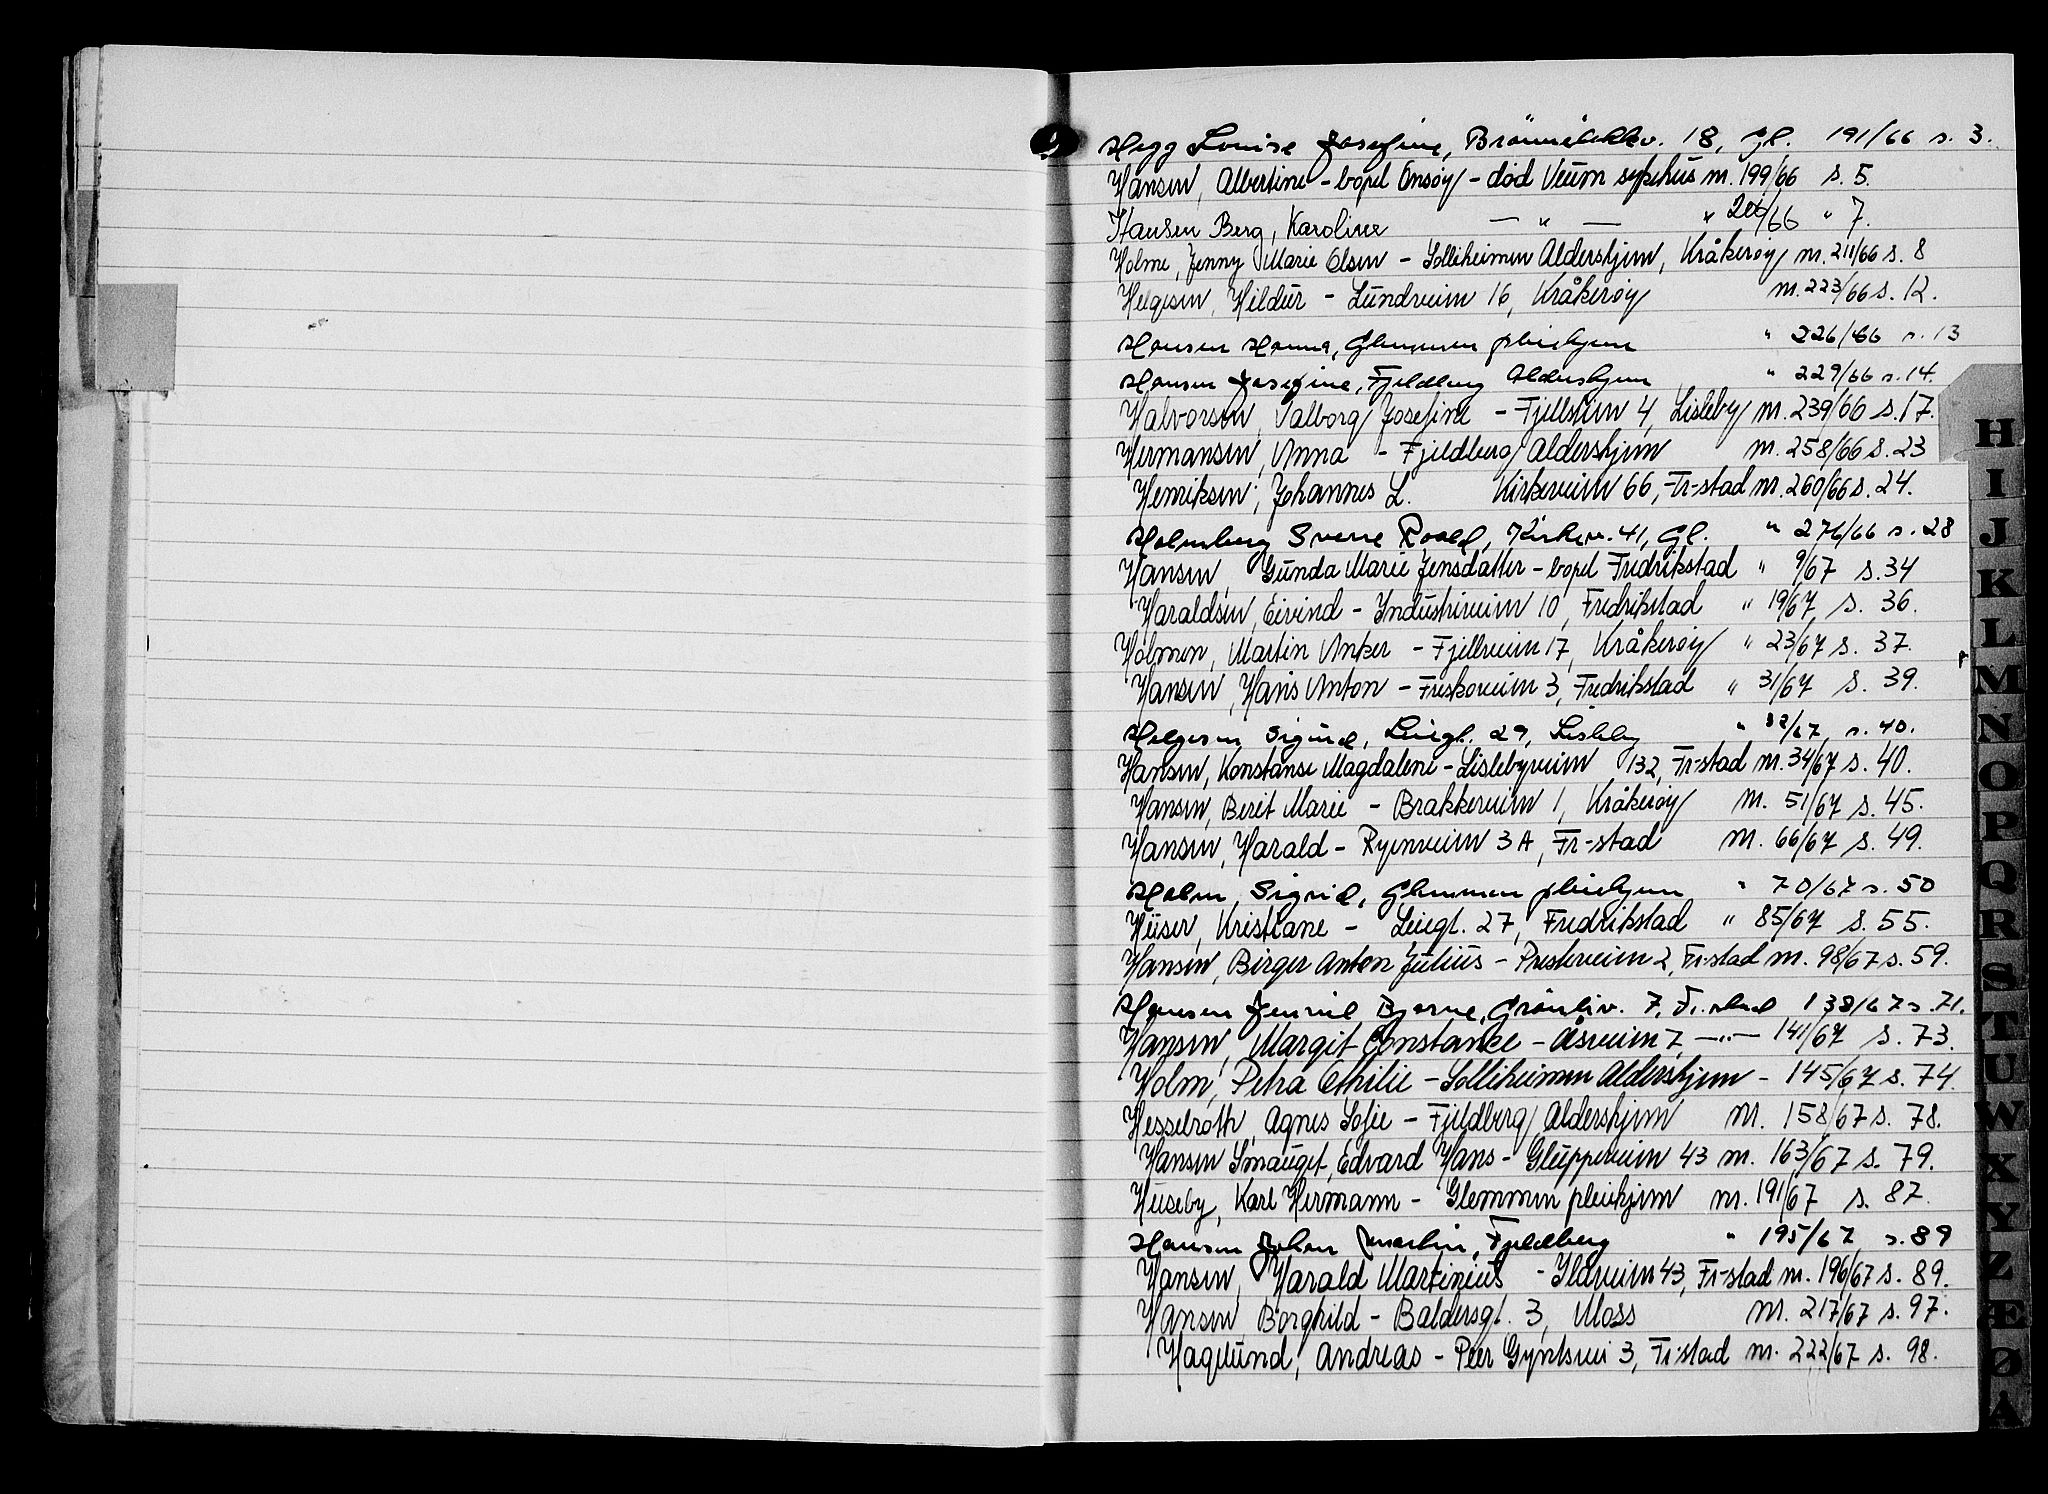 Hegg Louise Josefine, Brønneløkkv. 18, Gl. 191/66 s. 3.
Hansen, Albertine - bopel Onsøy - død Veum sykehus nr. 199/66 s. 5.
Hansen Berg, Karoline — " — " 206/66 " 7.
Holme, Jenny Marie Olsen - Solliheimen Aldershjem, Kråkerøy nr. 211/66 s. 8
Helgesen, Hildur - Lundveien 16, Kråkerøy nr. 223/66 s. 12.
Hansen Hanna, Glemmen pleiehjem " 226/66 s. 13
Hansen Josefine, Fjeldberg Aldershjem " 229/66 s. 14.
Halvorsen, Valborg Josefine - Fjellstien 4, Lisleby nr. 239/66 s. 17.
Hermansen, Anna - Fjeldberg Aldershjem nr. 258/66 s. 23
Henriksen, Johannes L. Kirkeveien 66, Fr-stad nr. 260/66 s. 24.
Holmberg Sverre Roald, Kirkev. 41, Gl. " 276/66 s. 28
Hansen, Gunda Marie Jensdatter - bopel Fredrikstad " 9/67 s. 34
Haraldsen, Eivind - Industriveien 10, Fredrikstad " 19/67 s. 36.
Holmen, Martin Anker - Fjellveien 17, Kråkerøy " 23/67 s. 37.
Hansen, Hans Anton - Freskoveien 3, Fredrikstad " 31/67 s. 39.
Helgesen Sigurd, Leiegt. 29, Lisleby " 32/67 s. 40.
Hansen, Konstanse Magdalene - Lislebyveien 132, Fr-stad nr. 34/67 s. 40.
Hansen, Berit Marie - Brakkeveien 1, Kråkerøy nr. 51/67 s. 45.
Hansen, Harald - Ryenveien 3 A, Fr-stad nr. 66/67 s. 49.
Holm, Sigrid, Glemmen pleiehjem " 70/67 s. 50
Huser, Kristiane - Leiegt. 27, Fredrikstad " 85/67 s. 55.
Hansen, Birger Anton Julius - Presteveien 2, Fr-stad nr. 98/67 s. 59.
Hansen Bjarne, Grønliv. 7, Fr.stad 138/67 s. 71.
Hansen, Margit Constance - Åsveien 7, — " — 141/67 s. 73.
Holm, Petra Othilie - Solliheimen Aldershjem - 145/67 s. 74.
Hesselroth, Agnes Sofie - Fjeldberg Aldershjem nr. 158/67 s. 78.
Hansen Smauget, Edvard Hans - Gluppeveien 43 nr. 163/67 s. 79.
Huseby, Karl Hermann - Glemmen pleiehjem nr. 191/67 s. 87.
Hansen Johan Martin, Fjeldberg " 195/67 s. 89
Hansen, Harald Martinius - Ilaveien 43, Fr-stad nr. 196/67 s. 89.
Hansen, Borghild - Baldersgt. 3, Moss nr. 217/67 s. 97.
Haglund, Andreas - Peer Gyntsvei 3, Fr-stad nr. 222/67 s. 98.
H
I
J
K
L
M
N
O
P
Q
R
S
T
U
W
X
Y
Z
Æ
Ø
Å